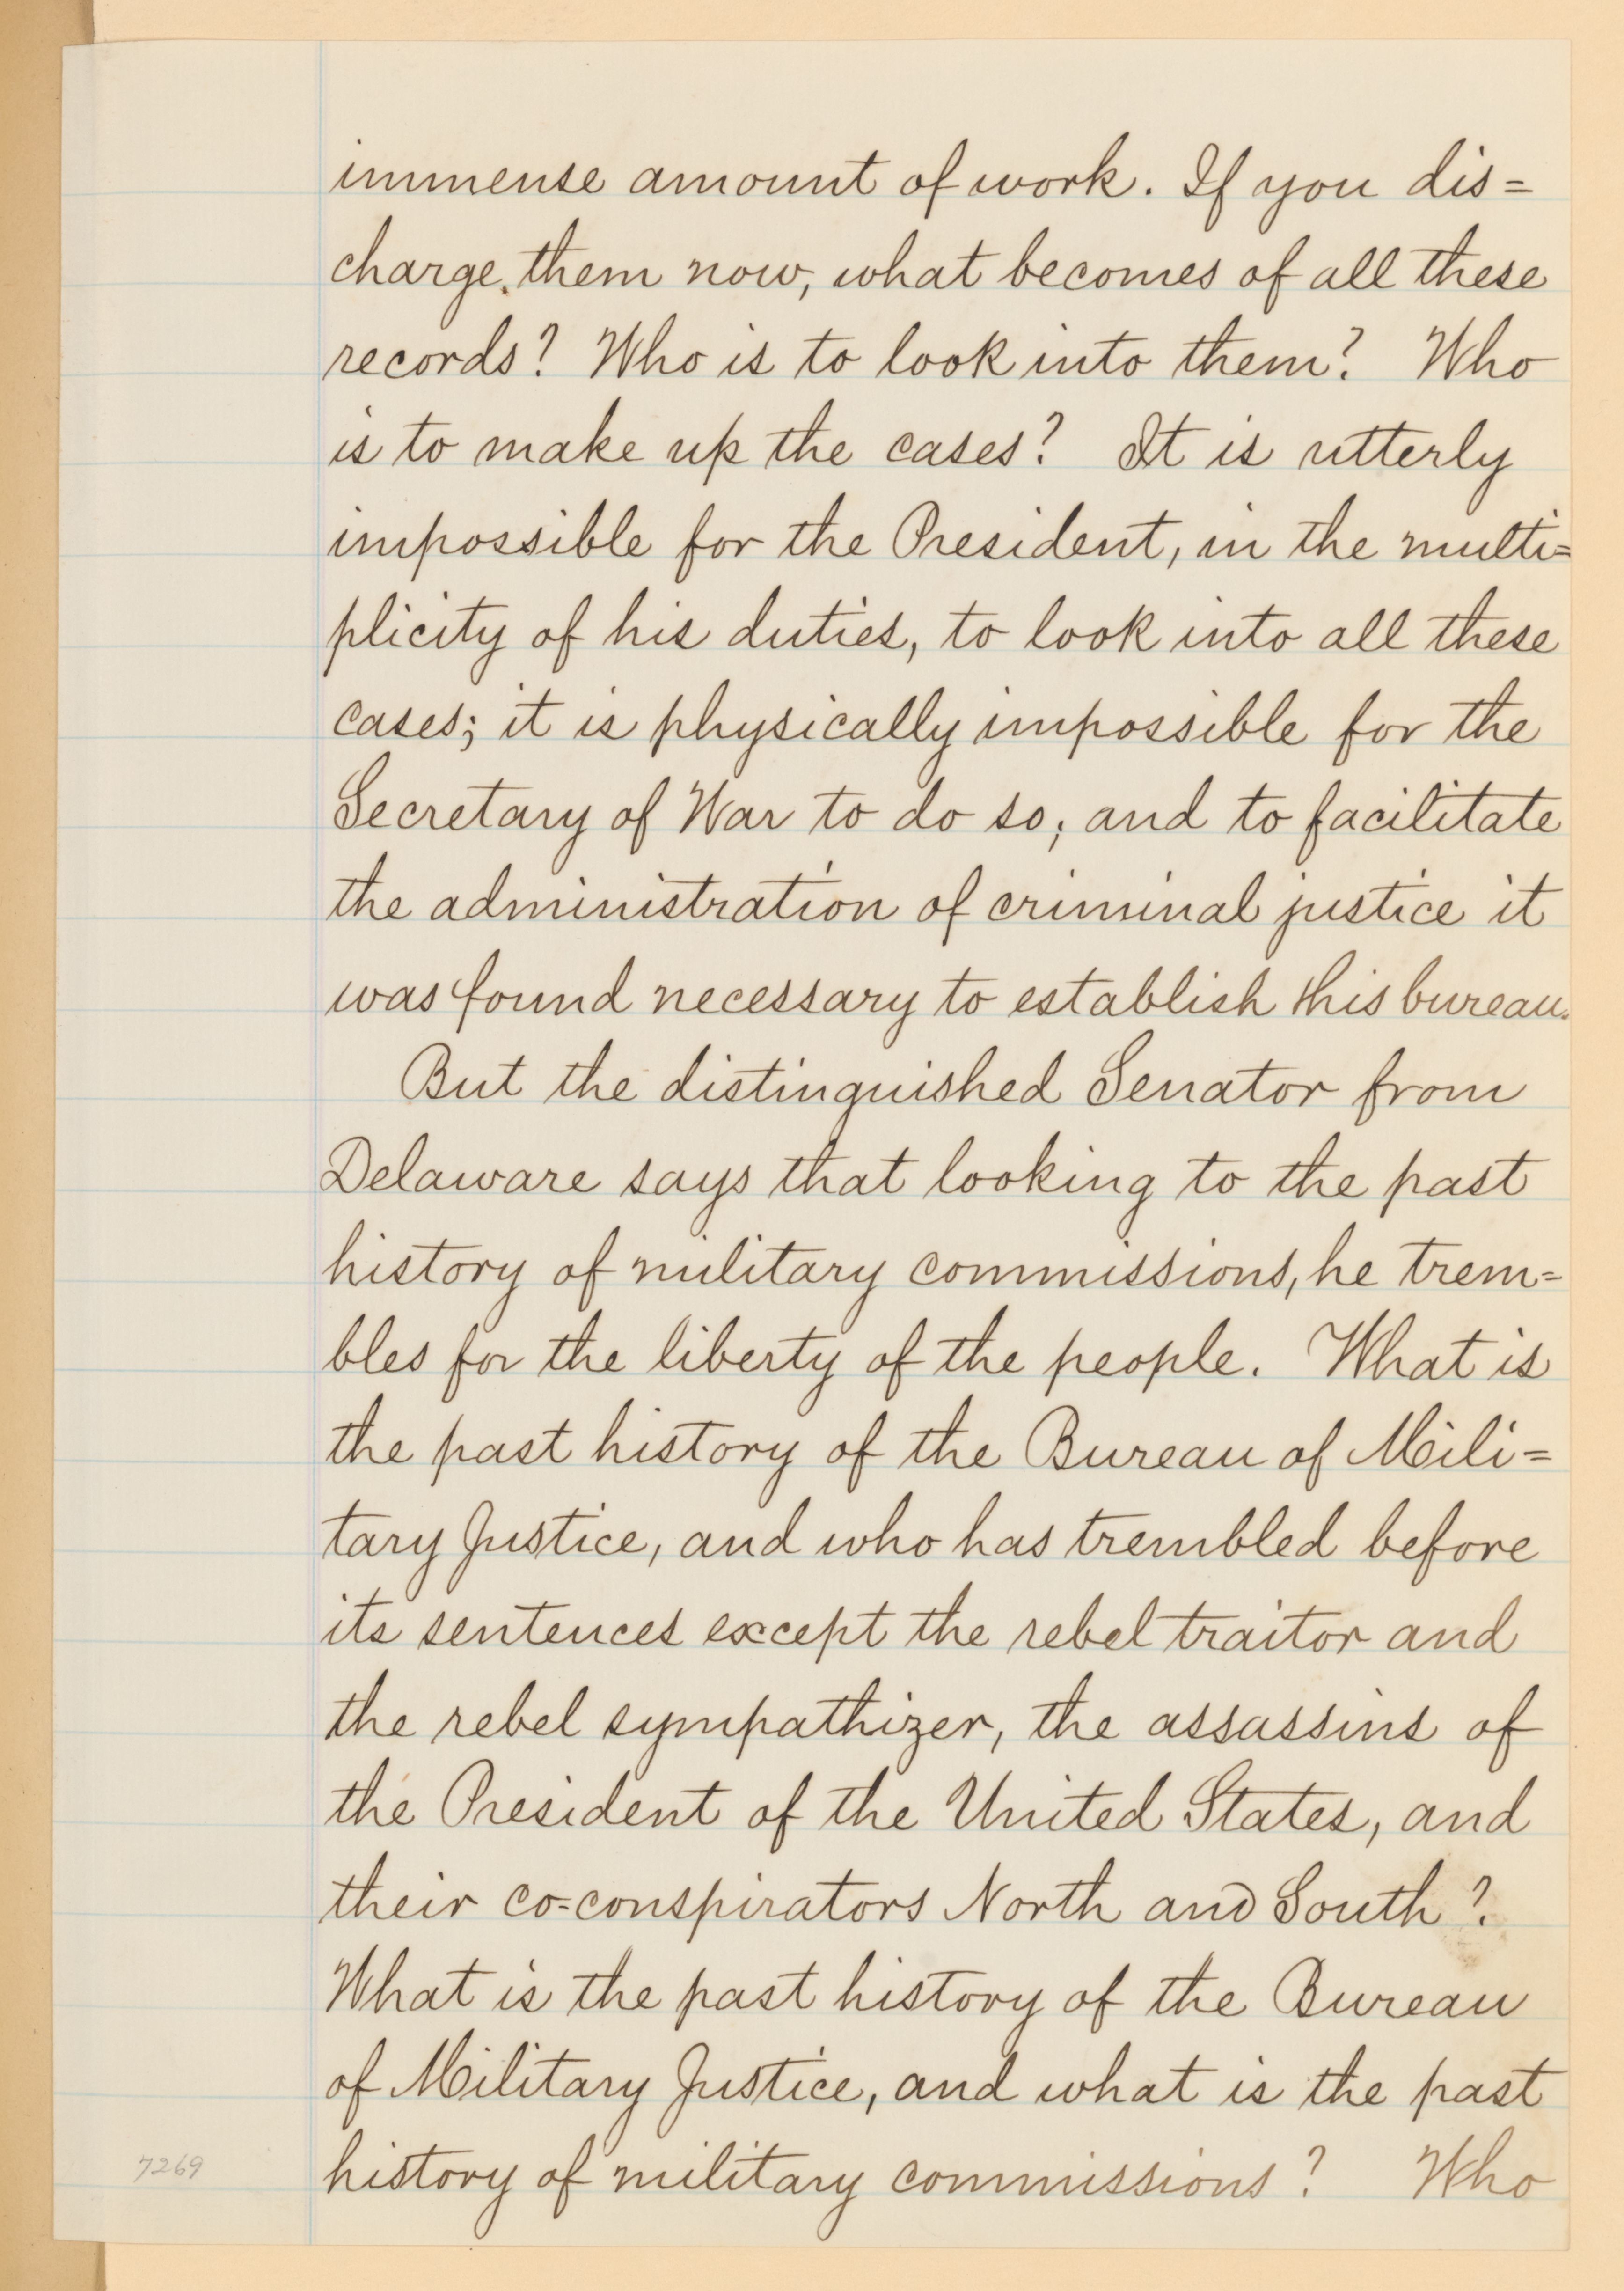 immense amount of work. If you dis=
charge. them now, what becomes of all these
records? Who is to look into them? Who
is to make up the cases? It is utterly
impossible for the President, in the multi=
plicity of his duties, to look into all these
cases; it is physically impossible for the
Secretary of War to do so; and to facilitate
the administration of criminal justice it
was found necessary to establish this bureau.
But the distinguished Senator from
Delaware says that looking to the past
history of military commissions, he trem=
bles for the liberty of the people. What is
the past history of the Bureau of Mili=
tary Justice, and who has trembled before
its sentences except the rebel traitor and
the rebel sympathizer, the assassins of
the President of the United States, and
their co=conspirators North and South?
What is the past history of the Bureau
of Military Justice, and what is the past
history of military commissions? Who
7269